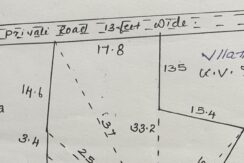 Private Road 13 feet wide
17.8
135
K.V.
14.6
15.4
31
33.2
3.4
2.5